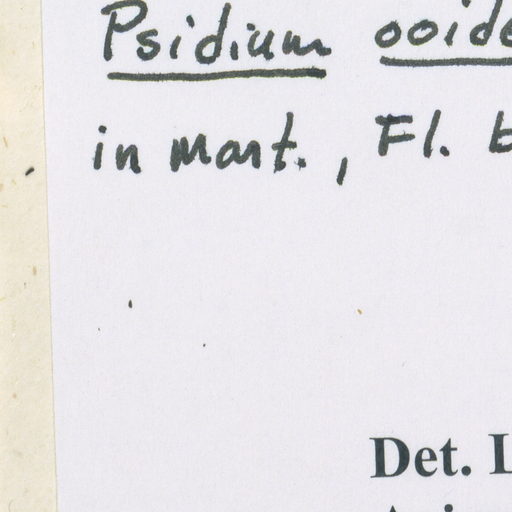 Psidium ooide
in Mart., Fl. b
Det. L